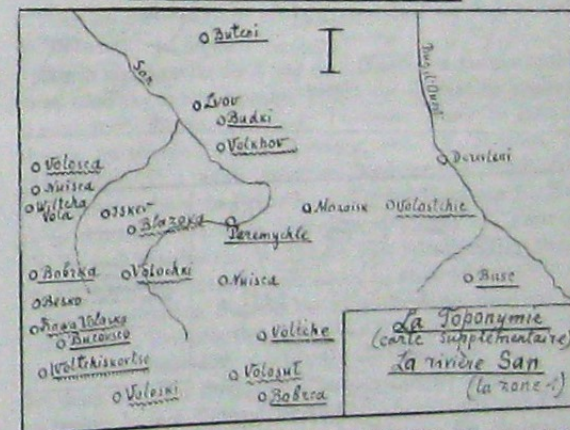 Buteni
San
Lvov
Budki
Volkhov
Volosca
Nuisca
Wiltcha
Vola
Iskev
Blazova
Peremychle
Mozaisk
Volostchie
Derevleni
Bobrka
Volochki
Nuisca
Busc
Besko
Rawa Volosko
Bucovsco
Voltchiskovtse
Voltche
Voloski
Volosut
Bobrca
La Toponymie
(carte supplémentaire)
La rivière San
(la zone-I)